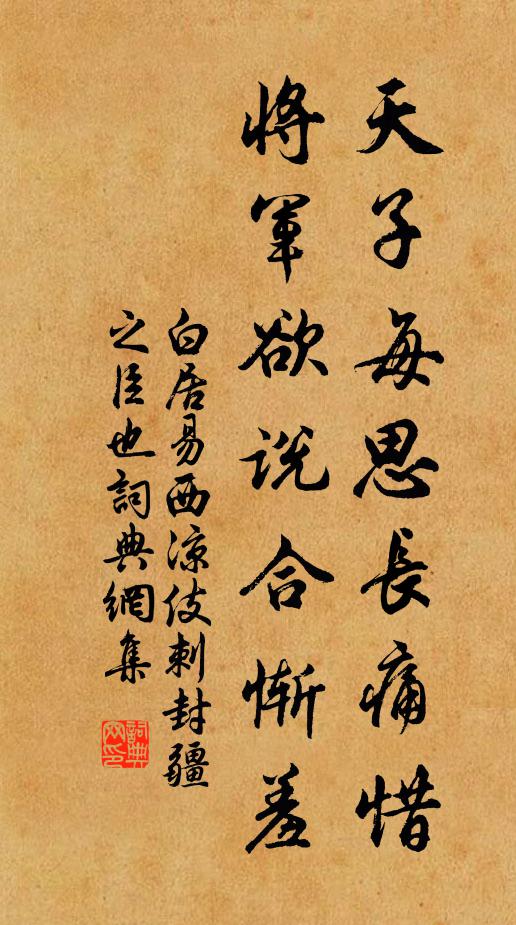 天子每思長痛惜
將軍欲說合慚羞
白居易西涼伎刺封疆
之臣也詞典網集
詞典網印